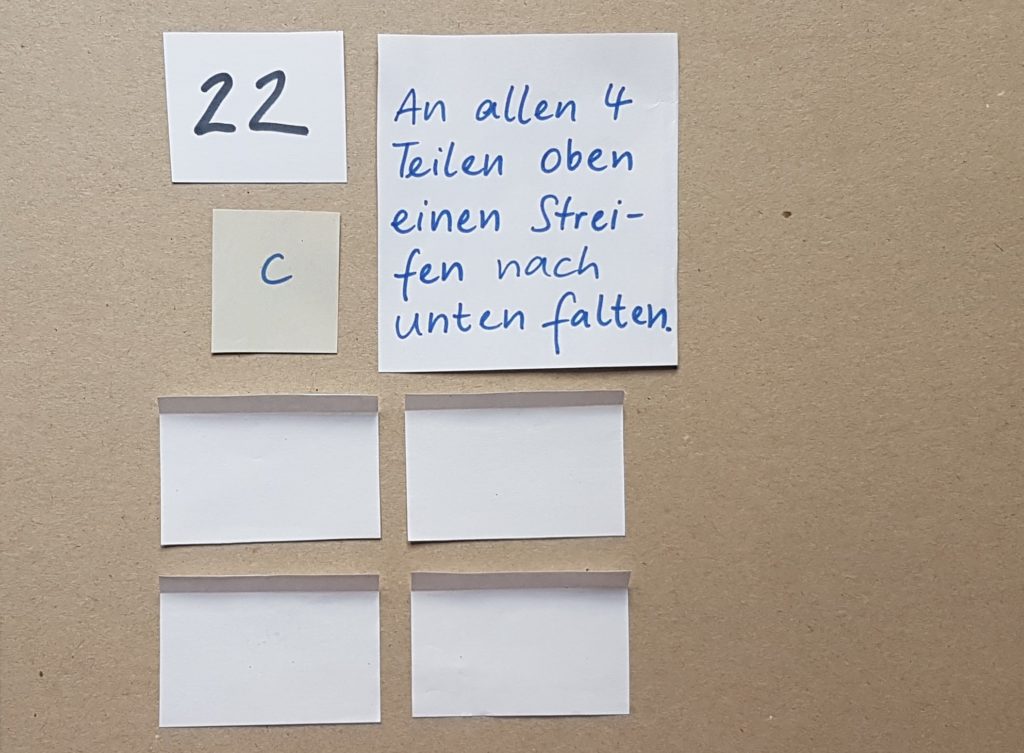 22
C
An allen 4
Teilen oben
einen Strei-
fen nach
unten falten.